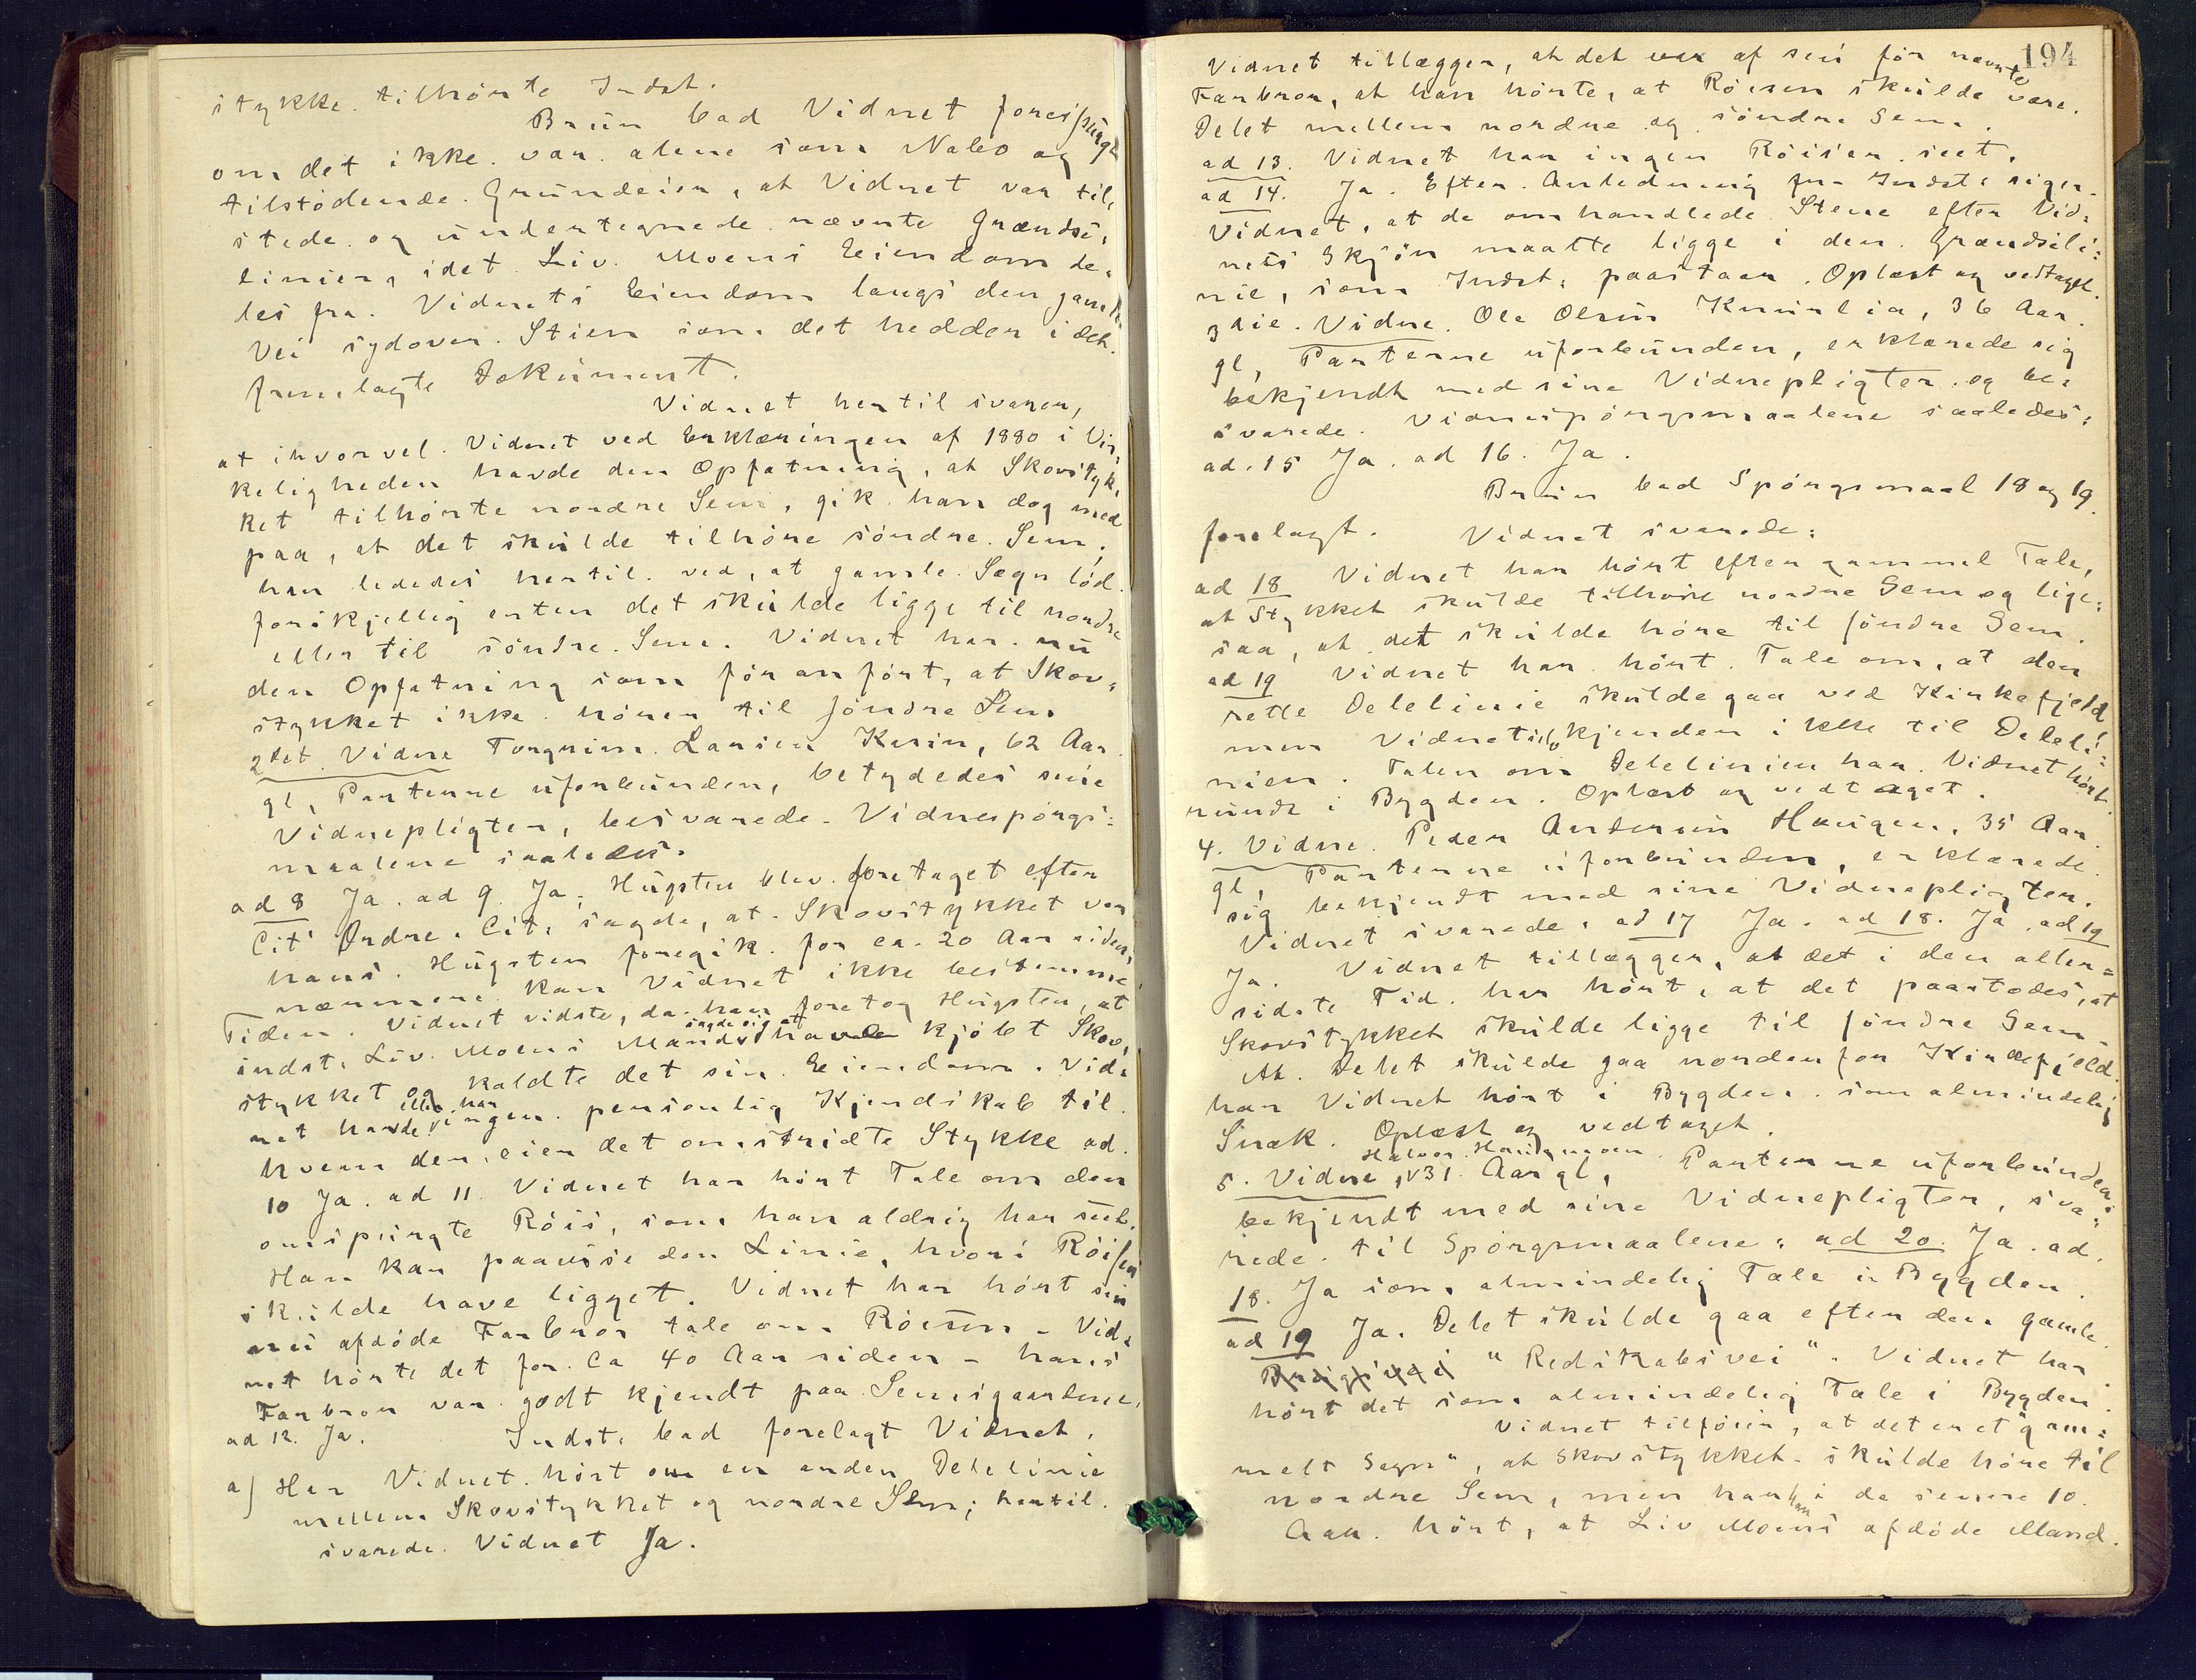 stykke tilhörte Indst.
Brun bad Vidnet forespurgt
om det ikke var alene som Nabo og
tilstödende Grundeier, at Vidnet var til,
stede og undertegnede nævnte Grændse,
linier, idet Liv Moens Eiendom de,
les fra Vidnets Eiendom langs den gamle
Vei sydover. Stien som det hedder i det
fremlagte Dokument.
Vidnet hertil svarer,
at ihvorvel Vidnet ved Erklæringen af 1880 i Vir,
keligheden havde den Opfatning, at Skovstyk,
ket tilhörte nordre Sem, gik han dog med
paa, at det skulde tilhöre söndre Sem;
han lededes hertil ved, at gamle Sagn löd
forskjellig enten det skulde ligge til nordre
eller til söndre Sem. Vidnet har nu
den Opfatning som för anfört, at Skov,
stykket ikke hörer til söndre Sem
2det Vidne Torgrim Larsen, 62 Aar
gl, Parterne uforbunden, betydedes sine
Vidnepligter, besvarede Vidnespörgs=
maalene saaledes.
ad 8 Ja. ad 9 Ja, Hugsten blev foretaget efter
Cit' Ordre. Cit, sagde, at Skovstykket var
hans. Hugsten foregik for ca. 20 Aar siden,
nærmere kan Vidnet ikke bestemme
Tiden. Vidnet vidste, da han foretog Hugsten, at
indst, Liv Moens Mand sagde sig at have kjöbt Skov,
stykket og kaldte det sin Eiendom. Vid,
net havde eller har ingen personlig Kjendskab til
hvem der eier det omstridte Stykke ad
10 Ja. ad 11. Vidnet har hört Tale om den
omspurgte Röis, som han aldrig har seet.
Han kan paavise den Linie, hvori Röisen
skulde have ligget. Vidnet har hört sin
nu afdöde Farbror tale om Röisen - Vid,
net hörte det for Ca 40 Aar siden - hans
Farbror var godt kjendt paa Semsgaardene.
ad 12. Ja. Indst. bad forelagt Vidnet,
a) Har Vidnet hört om en anden Delelinie
mellem Skovstykket og nordre Sem; hertil
svarede Vidnet Ja.
194
Vidnet tillægger, at det var af sin för nævnte
Farbror, at han hörte, at Röisen skulde være
Delet mellem nordre og söndre Sem.
ad 13. Vidnet har ingen Röiser seet.
ad 14. Ja. Efter Anledning fra Indst. siger
Vidnet, at de omhandlede Stene efter Vid,
nets Skjön maatte ligge i den Grændseli=
nie, som Indst, paastaar. Oplæst og vedtaget.
3die Vidne. Ole Olsen, 36 Aar
gl, Parterne uforbunden, erklærede sig
bekjendt med sine Vidnepligter og be,
svarede Vidnespörgsmaalene saaledes:
ad. 15 Ja. ad 16. Ja.
Brun bad Spörgsmaal 18 og 19
forelagt. Vidnet svarede:
ad 18 Vidnet har hört efter gammel Tale,
at Stykket skulde tilhöre nordre Sem og lige:
saa, at det skulde höre til söndre Sem.
ad 19 Vidnet har hört Tale om, at den
rette Delelinie skulde gaa ved Kirkefjeld
men Vidnet selv kjender ikke til Deleli=
nien. Talen om Delelinien har Vidnet hört
rundt i Bygden. Oplæst og vedtaget.
4. Vidne. Peder Andersen Haugen, 35 Aar
gl, Parterne uforbunden, erklærede
sig bekjendt med sine Vidnepligter.
Vidnet svarede, ad 17 Ja. ad 18. Ja. ad 19
Ja. Vidnet tillægger, at det i den aller=
sidste Tid har hört, at det paastodes, at
Skovstykket skulde ligge til söndre Sem
At Delet skulde gaa nordenfor Kirkefjeld
har Vidnet hört i Bygden som almindelig
Snak. Oplæst og vedtaget.
5. Vidne, Halvor Haugmoen 31 Aar gl, Parterne uforbunden,
bekjendt med sine Vidnepligter, sva,
rede til Spörgsmaalene: ad 20. Ja. ad
18. Ja som almindelig Tale i Bygden.
ad 19 Ja. Delet skulde gaa efter den gamle
"Redskabsvei". Vidnet har
hört det som almindelig Tale i Bygden.
Vidnet tilföier, at det er et "gam=
melt Sagn", at Skovstykket skulde höre til
nordre Sem, men han har i de senere 10
Aar hört, at Liv Moens afdöde Mand